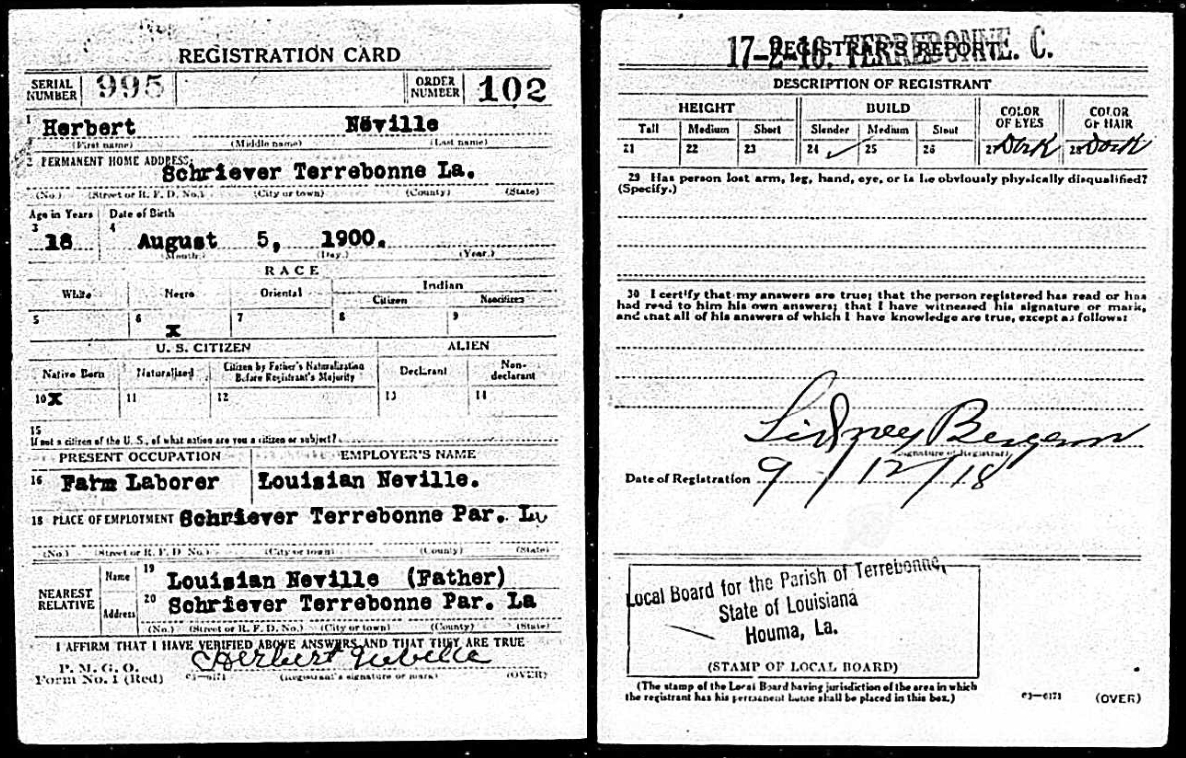 REGISTRATION CARD
SERIAL NUMBER 995
ORDER NUMBER 102
1 Herbert Neville
(First name) (Middle name) (Last name)
2 PERMANENT HOME ADDRESS:
Schriever Terrebonne La.
(No.) (Street or R. F. D. No.) (City or town) (County) (State)
Age in Years Date of Birth
3 18 4 August 5, 1900.
(Month.) (Day.) (Year.)
RACE
White Negro Oriental Indian
Citizen Noncitizen
5 6 X 7 8 9
U. S. CITIZEN ALIEN
Native Born Naturalized Citizen by Father's Naturalization Before Registrant's Majority Declarant Non-declarant
10 X 11 12 13 14
15
If not a citizen of the U. S., of what nation are you a citizen or subject?
PRESENT OCCUPATION EMPLOYER'S NAME
16 Farm Laborer Louisian Neville.
18 PLACE OF EMPLOYMENT Schriever Terrebonne Par. La
(No.) (Street or R. F. D. No.) (City or town) (County) (State)
NEAREST RELATIVE
Name 19 Louisian Neville (Father)
Address 20 Schriever Terrebonne Par. La
(No.) (Street or R. F. D. No.) (City or town) (County) (State)
I AFFIRM THAT I HAVE VERIFIED ABOVE ANSWERS AND THAT THEY ARE TRUE
Herbert Neville
P. M. G. O.
Form No. 1 (Red) 03—6171 (Registrant's signature or mark) (OVER)
REGISTRAR'S REPORT
17-2-16. TERREBONNE. C.
DESCRIPTION OF REGISTRANT
HEIGHT BUILD COLOR OF EYES COLOR OF HAIR
Tall Medium Short Slender Medium Stout
21 22 23 24 ✓ 25 26 27 Dark 28 Dark
29 Has person lost arm, leg, hand, eye, or is he obviously physically disqualified?
(Specify.)
30 I certify that my answers are true; that the person registered has read or has
had read to him his own answers; that I have witnessed his signature or mark,
and that all of his answers of which I have knowledge are true, except as follows:
Sidney Bergeron
(Signature of Registrar)
Date of Registration 9/12/18
Local Board for the Parish of Terrebonne,
State of Louisiana
Houma, La.
(STAMP OF LOCAL BOARD)
(The stamp of the Local Board having jurisdiction of the area in which
the registrant has his permanent home shall be placed in this box.)
03—6171 (OVER)